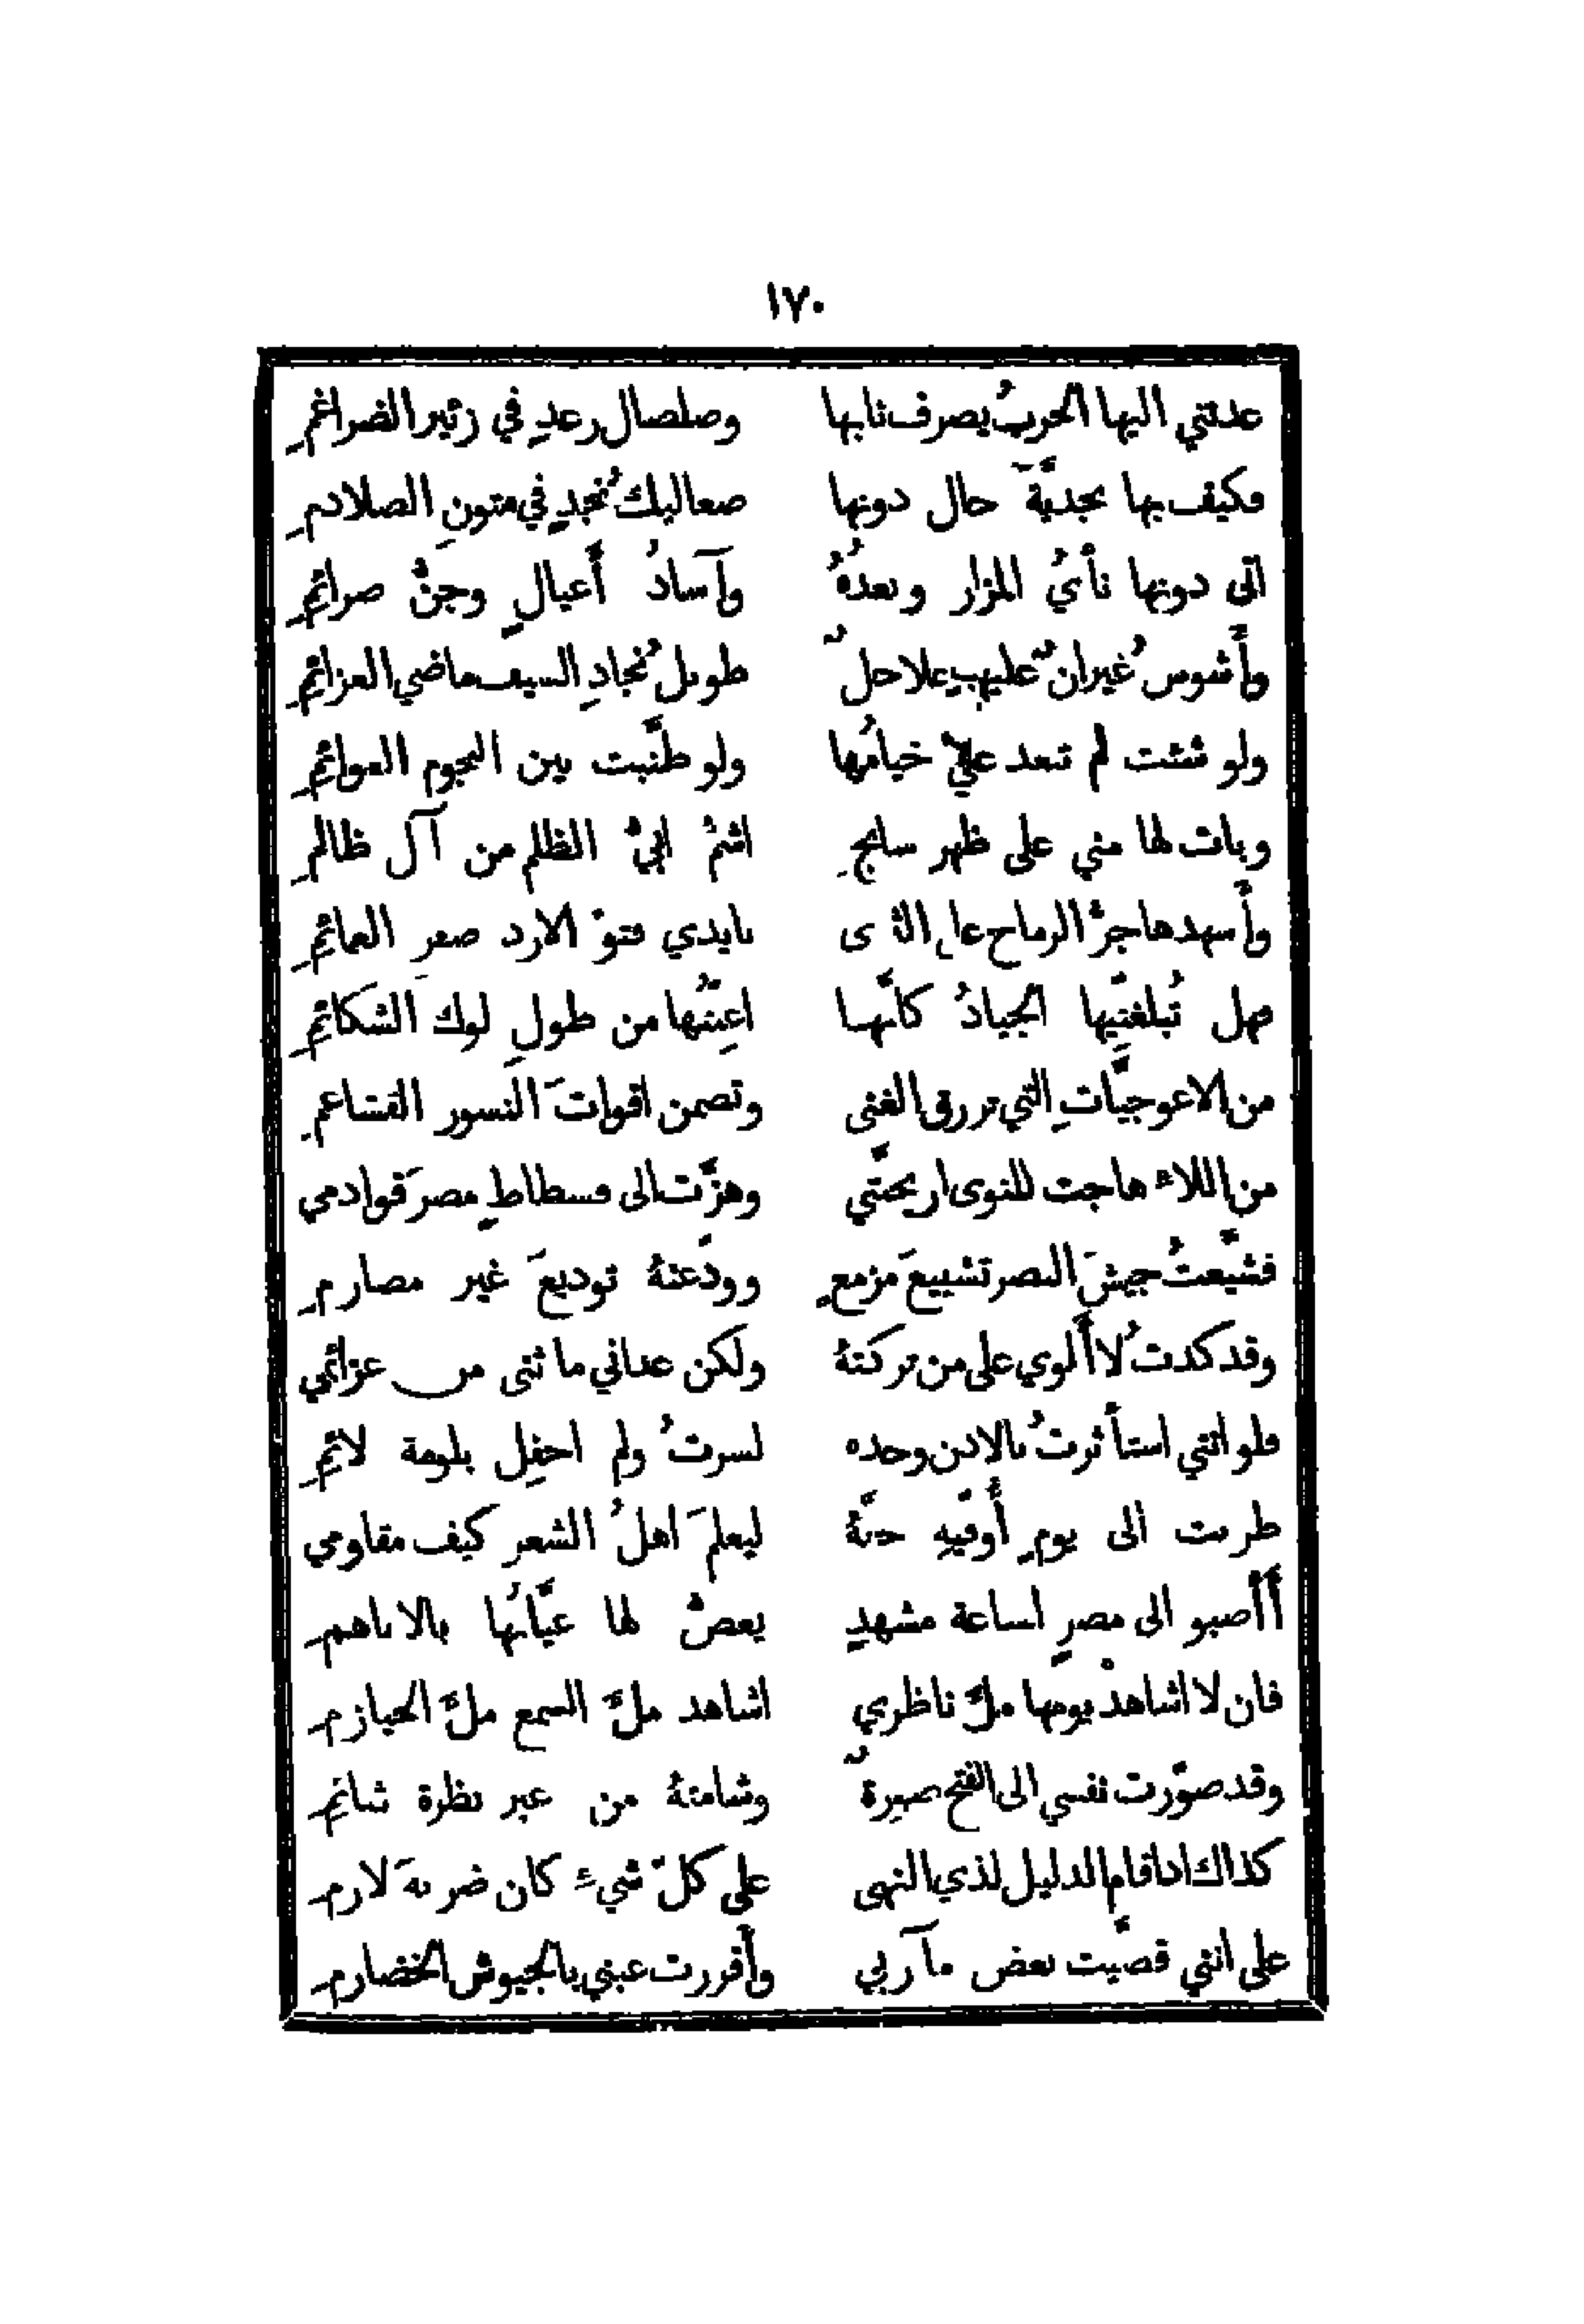 ١٧٠
عدتني اليها الحربُ يصرف نابها وصلصال رعدٍ في زئير الضراغمِ
فكيف بها نجديَّةً حال دونها صعاليكُ نجدٍ في متونِ الصلادمِ
اتى دونها نأيُ المزار وبعدُهُ وآسادُ أغيالٍ وجنُّ صرائمِ
وأشوسُ غيرانٌ عليها حلاحلٌ طويلُ نجادِ السيف ماضي العزائمِ
ولو شئت لم تبعد عليَّ خيامُها ولو طنَّبت بين النجوم العواتمِ
وبات لها مني على ظهر سابحٍ اشمُّ ابيُّ الظلم من آل ظالمِ
وأسهدها جرُّ الرماح على الثرى بايدي فتوِّ الازد صفرِ العمائمِ
فهل تُبلغنّيها الجيادُ كأنَّها اعِنَّتُها من طولِ لوك الشكائمِ
من الاعوجيَّاتِ التي ترزق الغنى وتضمن اقواتَ النسور القشاعمِ
من اللاءِ هاجت للنوى اريحيَّتي وهزَّت الى فسطاطِ مصرَ قوادمي
فشيَّعتُ جيشَ النصر تشييعَ مزمعٍ وودَّعتهُ توديعَ غير مصارمِ
وقد كدتُ لا ألوي على من تركتهُ ولكن عداني ما ثنى من عزائمي
فلو انني استأثرتُ بالاذن وحده لسرتُ ولم احفِل بلومة لائمِ
طربت الى يومٍ أُوفّيهِ حقَّهُ ليعلمَ اهلُ الشعرِ كيف مقاومي
أأصبو الى مصرٍ لساعة مشهدٍ يعضُّ لها غيَّابُها بالاباهمِ
فان لا اشاهدْ يومها ملءَ ناظري اشاهد ملءَ السمع ملءَ الحيازمِ
وقد صوّرت نفسي الى الفتح صورةً وشامتهُ من غير نظرة شائمِ
كذاك اذا قام الدليل لذي النهى على كلّ شيءٍ كان ضربةَ لازمِ
على انني قضيَّت بعض مآربي وأقررت عيني بالجيوش الخضارمِ